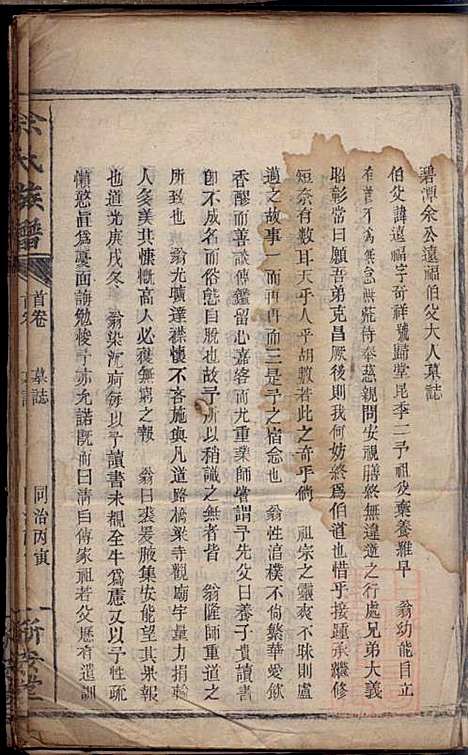 碧潭余公遠福伯父大人墓誌
伯父諱遠福字奇祥號歸堂昆季二予祖父棄養雅早 翁幼能自立
有為無怠無荒侍奉慈親問安視膳終無違逆之行處兄弟大義
昭彰當曰願吾弟克昌厥後則我何妨終爲伯道也惜乎接踵承繼修
短奈有數耳天乎人乎胡數若此之奇乎倘 祖宗之靈爽不昧則盧
邁之故事一而再再而三是予之宿念也 翁性渲樸不尚繁華愛飲
香醪而善談傳鑑留心嘉客而尤重業師嘗謂予先父曰養子貴讀書
卽不成名而器度超俗自是可人 態自脫也故以稍識之無者皆 翁隆師重道之
所致也 翁尤曠達襟懷不吝施與凡道路橋梁寺觀廟宇量力捐輸
人多美其慷慨高人必獲無窮之報 翁曰裘爰腋集安能望其果報
也道光庚戌冬 翁染沉疴每以予讀書未覩全牛爲慮又以予性疏
懶憨直爲憂面誨勉悛予亦允諾既而曰清白傳家祖若父歷有遺訓
余氏族譜
首卷
墓誌
同治丙寅
新安堂